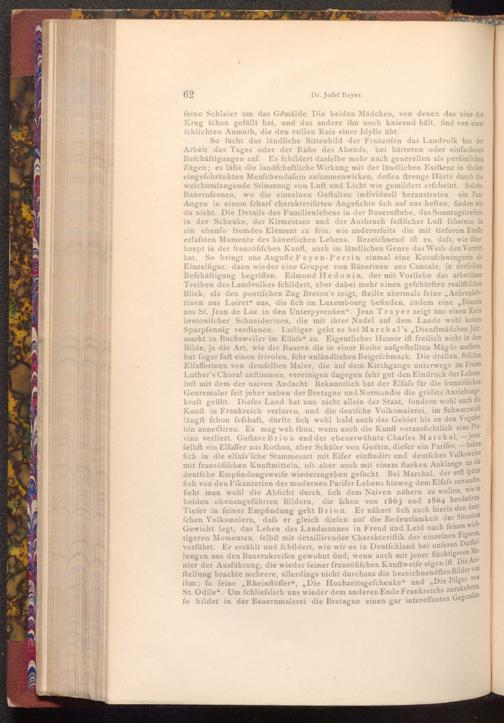 62
Dr. Josef Bayer.
feine Schleier um das Gemälde. Die beiden Mädchen, von denen das eine den
Krug schon gefüllt hat, und das andere ihn noch knieend hält, sind von einer
schlichten Anmuth, die den vollen Reiz einer Idylle übt.
So sucht das ländliche Sittenbild der Franzosen das Landvolk bei der
Arbeit des Tages oder der Ruhe des Abends, bei härteren oder einfacheren
Beschäftigungen auf. Es schildert dasselbe mehr nach generellen als persönlichen
Zügen; es läßt die landschaftliche Wirkung mit der ländlichen Existenz in diesen
eingeschränkten Menschendasein zusammenwirken, dessen strenge Härte durch die
weichumfangende Stimmung von Luft und Licht wie gemildert erscheint. Solche
Bauernscenen, wo die einzelnen Gestalten individuell heraustreten, ein Paar
Augen in einem scharf charakterisirten Angesichte sich auf uns heften, finden wir
da nicht. Die Details des Familienlebens in der Bauernstube, das Sonntagstreiben
in der Schenke, der Kirmestanz und der Ausbruch festlicher Lust scheinen da
ein ebenso fremdes Element zu sein, wie andererseits die mit tieferem Ernste
erfassten Momente des bäuerlichen Lebens. Bezeichnend ist es, dass, wie über-
haupt in der französischen Kunst, auch im ländlichen Genre das Weib den Vortritt
hat. So bringt uns Auguste Feyen-Perrin einmal eine Korbschwingerin als
Einzelfigur, dann wieder eine Gruppe von Bäuerinen aus Cancale, in derselben
Beschäftigung begriffen. Edmund Hedouin, der mit Vorliebe das arbeitsame
Treiben des Landvolkes schildert, aber dabei mehr einen geschärften realistischen
Blick, als den poetischen Zug Breton's zeigt, stellte abermals seine „Aehrenlese-
rinen aus Loiret“ aus, die sich im Luxembourg befinden, zudem eine „Bäuerin
aus St. Jean de Luz in den Unterpyrenäen“. Jean Trayer zeigt uns einen Kreis
bretonischer Schneiderinen, die mit ihrer Nadel auf dem Lande wohl keinen
Sparpfennig verdienen. Lustiger geht es bei Marchal's „Dienstmädchen Jahr-
markt zu Buchsweiler im Elsaß“ zu. Eigentlicher Humor ist freilich nicht in dem
Bilde, ja die Art, wie die Bauern die in einer Reihe aufgestellten Mägde mustern,
hat sogar fast einen frivolen, sehr unländlichen Beigeschmack. Die drallen, frischen
Elsasserinen von demselben Maler, die auf dem Kirchgange unterwegs im Freien
Luther's Choral anstimmen, vereinigen dagegen sehr gut den Eindruck der Lebens-
lust mit dem der naiven Andacht. Bekanntlich hat der Elsaß für die französischen
Genremaler seit jeher neben der Bretagne und Normandie die größte Anziehungs-
kraft geübt. Dieses Land hat nun nicht allein der Staat, sondern wohl auch die
Kunst in Frankreich verloren, und die deutsche Volksmalerei, im Schwarzwald
längst schon seßhaft, dürfte sich wohl bald auch das Gebiet bis zu den Vogesen
hin annectiren. Es mag weh thun, wenn auch die Kunst voraussichtlich eine Pro-
vinz verliert. Gustave Brion und der ebenerwähnte Charles Marchal, — jener
selbst ein Elsasser aus Rothau, aber Schüler von Guérin, dieser ein Pariser, — haben
sich in die elsaß'sche Stammesart mit Eifer einstudirt und deutsches Volkswesen
mit französischen Kunstmitteln, oft aber auch mit einem starken Anklange an die
deutsche Empfindungsweise wiederzugeben gesucht. Bei Marchal, der erst später
sich von den Pikanterien des modernen Pariser Lebens hinweg dem Elsaß zuwandte,
sieht man wohl die Absicht durch, sich dem Naiven nähern zu wollen, wie in
beiden obenangeführten Bildern, die schon von 1863 und 1864 herdatiren.
Tiefer in seiner Empfindung geht Brion. Er nähert sich auch hierin den deut-
schen Volksmalern, daß er gleich diesen auf die Bedeutsamkeit der Situation
Gewicht legt, das Leben des Landmannes in Freud und Leid nach seinen wich-
tigeren Momenten, selbst mit detaillirender Charakteristik der einzelnen Figuren,
vorführt. Er erzählt und schildert, wie wir es in Deutschland bei unseren Darstel-
lungen aus den Bauernkreisen gewohnt sind, wenn auch mit jener flüchtigeren Ma-
nier der Ausführung, die wieder seiner französischen Kunstweise eigen ist. Die Aus-
stellung brachte mehrere, allerdings nicht durchaus die bezeichnendsten Bilder von
ihm; so seine „Rheinflößer“, „Die Hochzeitsgeschenke“ und „Die Pilger von
St. Odile“. Um schließlich uns wieder dem anderen Ende Frankreichs zuzukehren,
so bildet in der Bauernmalerei die Bretagne einen gar interessanten Gegensatz